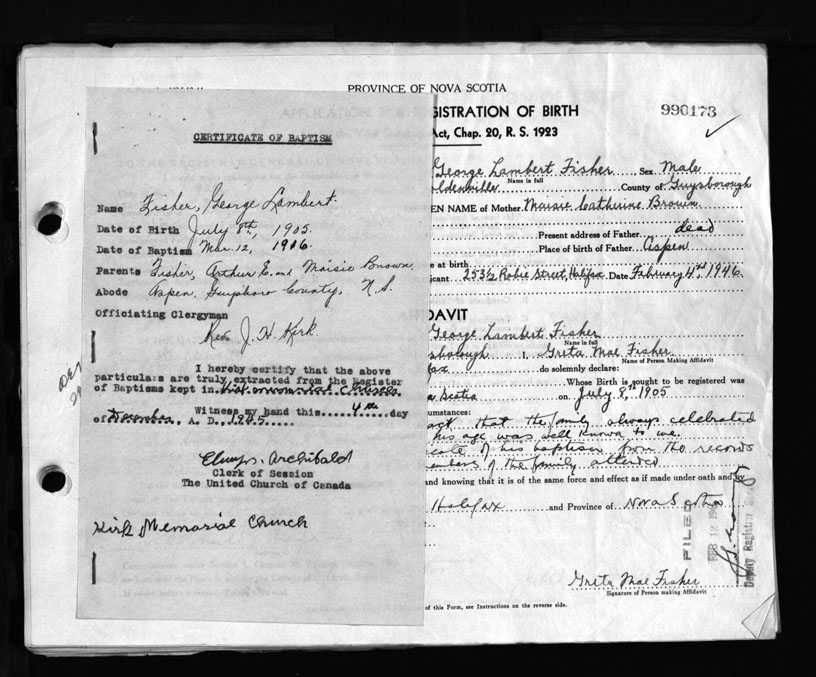 PROVINCE OF NOVA SCOTIA
GISTRATION OF BIRTH
990173
Act, Chap. 20, R. S. 1923
CERTIFICATE OF BAPTISM
Name Fisher, George Lambert.
Date of Birth July 8th, 1905.
Date of Baptism Mar. 12, 1906.
Parents Fisher, Arthur E. and Maisie Brown
Abode Aspen, Guysboro County, N.S.
Officiating Clergyman
Rev. J. H. Kirk
I hereby certify that the above
particulars are truly extracted from the Register
of Baptisms kept in
Witness my hand this.....4th...day
of December, A. D., 1945.....
Archibald
Clerk of Session
The United Church of Canada
Kirk Memorial Church
George Lambert Fisher Sex Male
Name in full
oldenville County of Guysborough
EN NAME of Mother Maisie Catherine Brown
Present address of Father dead
Place of birth of Father Aspen
e at birth
icant 253½ Robie Street, Halifax Date February 4th, 1946.
FFIDAVIT
George Lambert Fisher
Name in full
sborough I, Greta Mae Fisher
Name of Person Making Affidavit
fax do solemnly declare:
Whose Birth is sought to be registered was
a Scotia on July 8th, 1905
cumstances:
act that the family always celebrated
his age was well known to me
cate of his baptism from the records
members of the family attended
and knowing that it is of the same force and effect as if made under oath and by
Halifax and Province of Nova Scotia
FILED
FEB 12
Deputy Registrar
Greta Mae Fisher
Signature of Person making Affidavit
of this Form, see Instructions on the reverse side.